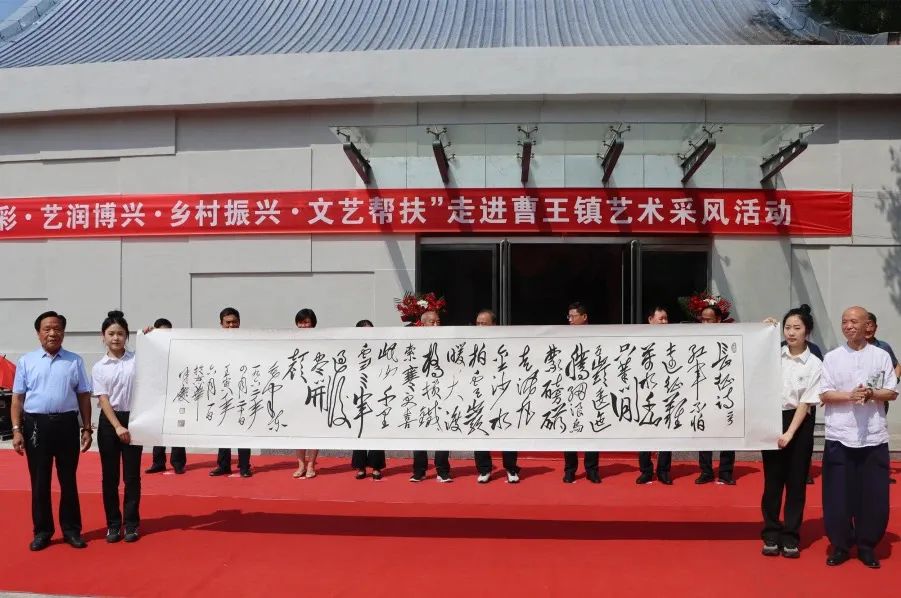 彩·艺润博兴·乡村振兴·文艺帮扶”走进曹王镇艺术采风活动
长征诗
红军不怕
远征难
万水千山
只等闲
五岭逶迤
腾细浪乌
蒙磅礴
走泥丸
金沙水
拍云崖
暖大渡
桥横铁
索寒更喜
岷山千里
雪三军
过后
尽开
颜
一九六二年
四月二十日